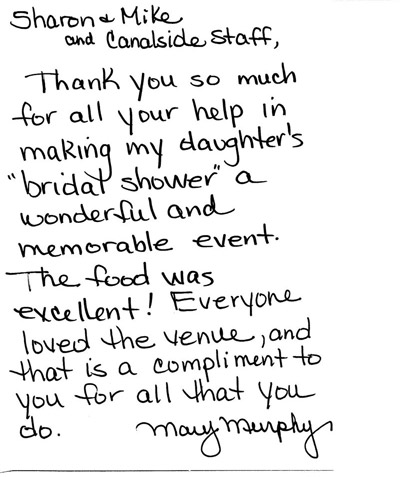 Sharon & Mike
and Canalside Staff,
Thank you so much
for all your help in
making my daughter's
"bridal shower" a
wonderful and
memorable event.
The food was
excellent! Everyone
loved the venue, and
that is a compliment to
you for all that you
do. Mary Murphy